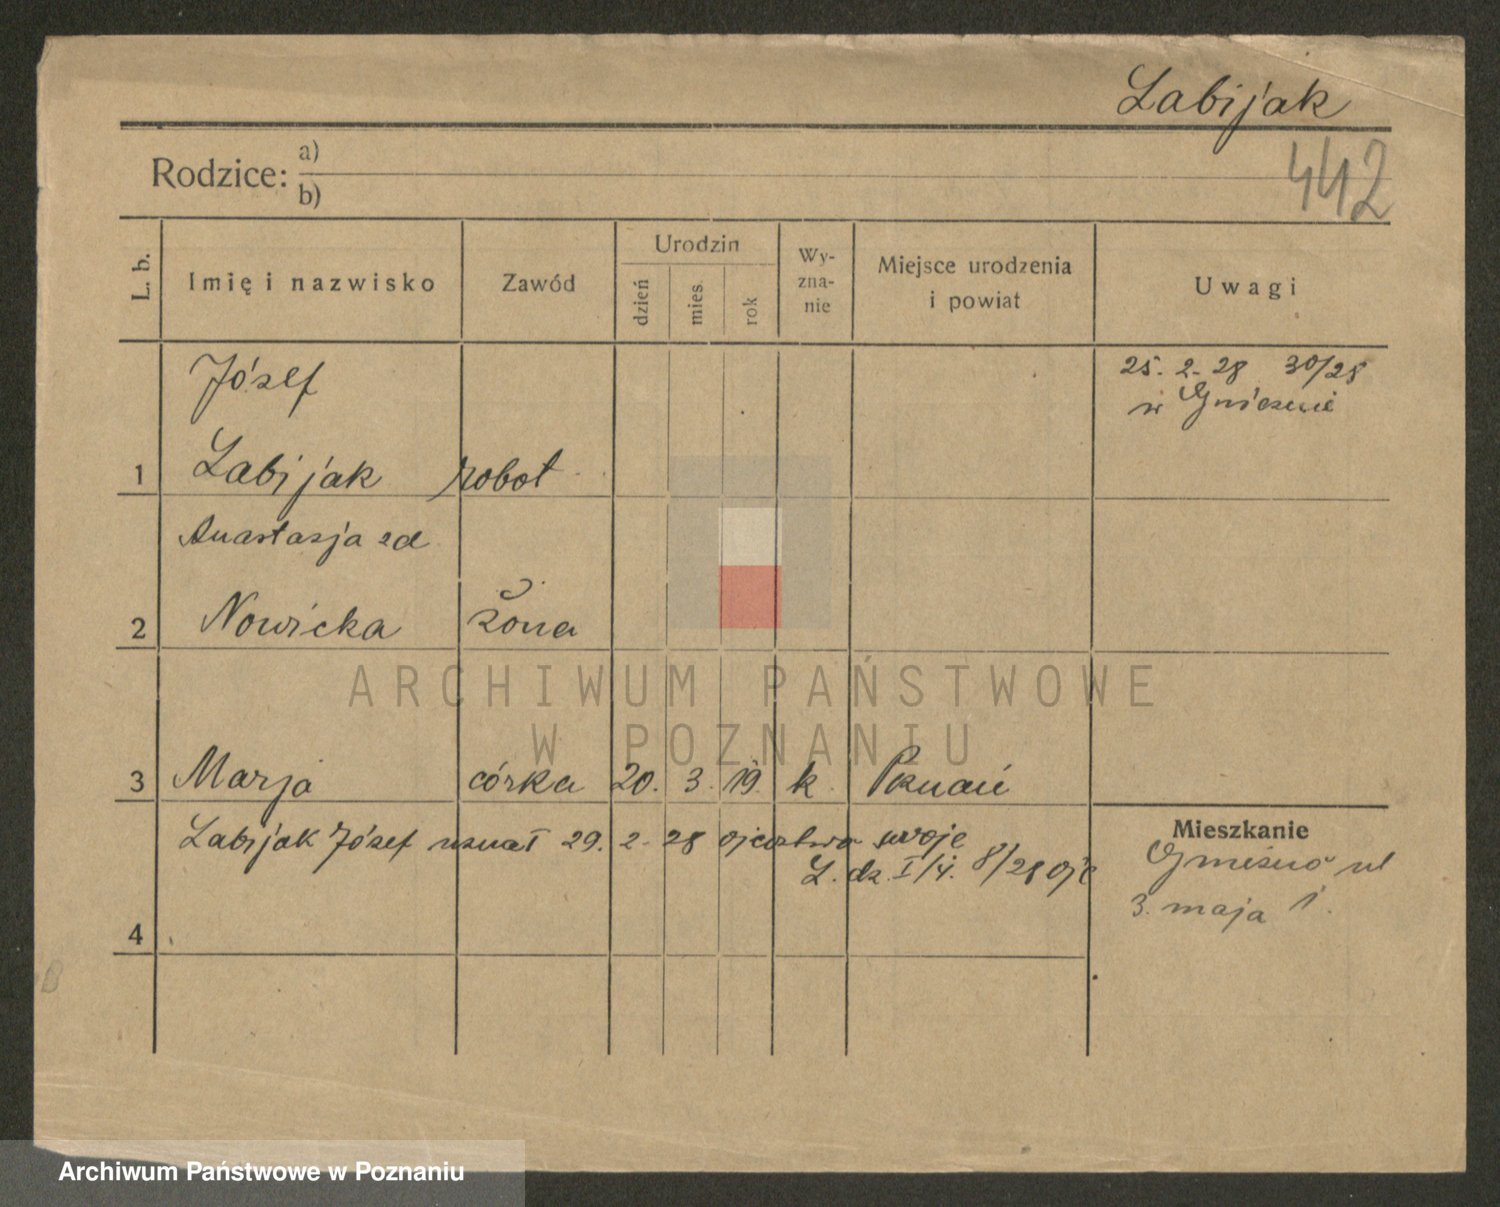 Labijak
Rodzice: a)
b)
442
L. b.
Imię i nazwisko
Zawód
Urodzin
dzień
mies.
rok
Wy-
zna-
nie
Miejsce urodzenia
i powiat
Uwagi
Józef
25. 2. 28 30/28
w Gnieznie
1 Labijak robot
Anastazja zd
2 Nowicka żona
ARCHIWUM PAŃSTWOWE
W POZNANIU
3 Marja córka 20. 3. 19. k. Poznań
Labijak Józef uznał 29. 2. 28 ojcostwo swoje
L. dz. I/4. 8/28 ojc
Mieszkanie
Gniezno ul
3. maja 1.
4
Archiwum Państwowe w Poznaniu